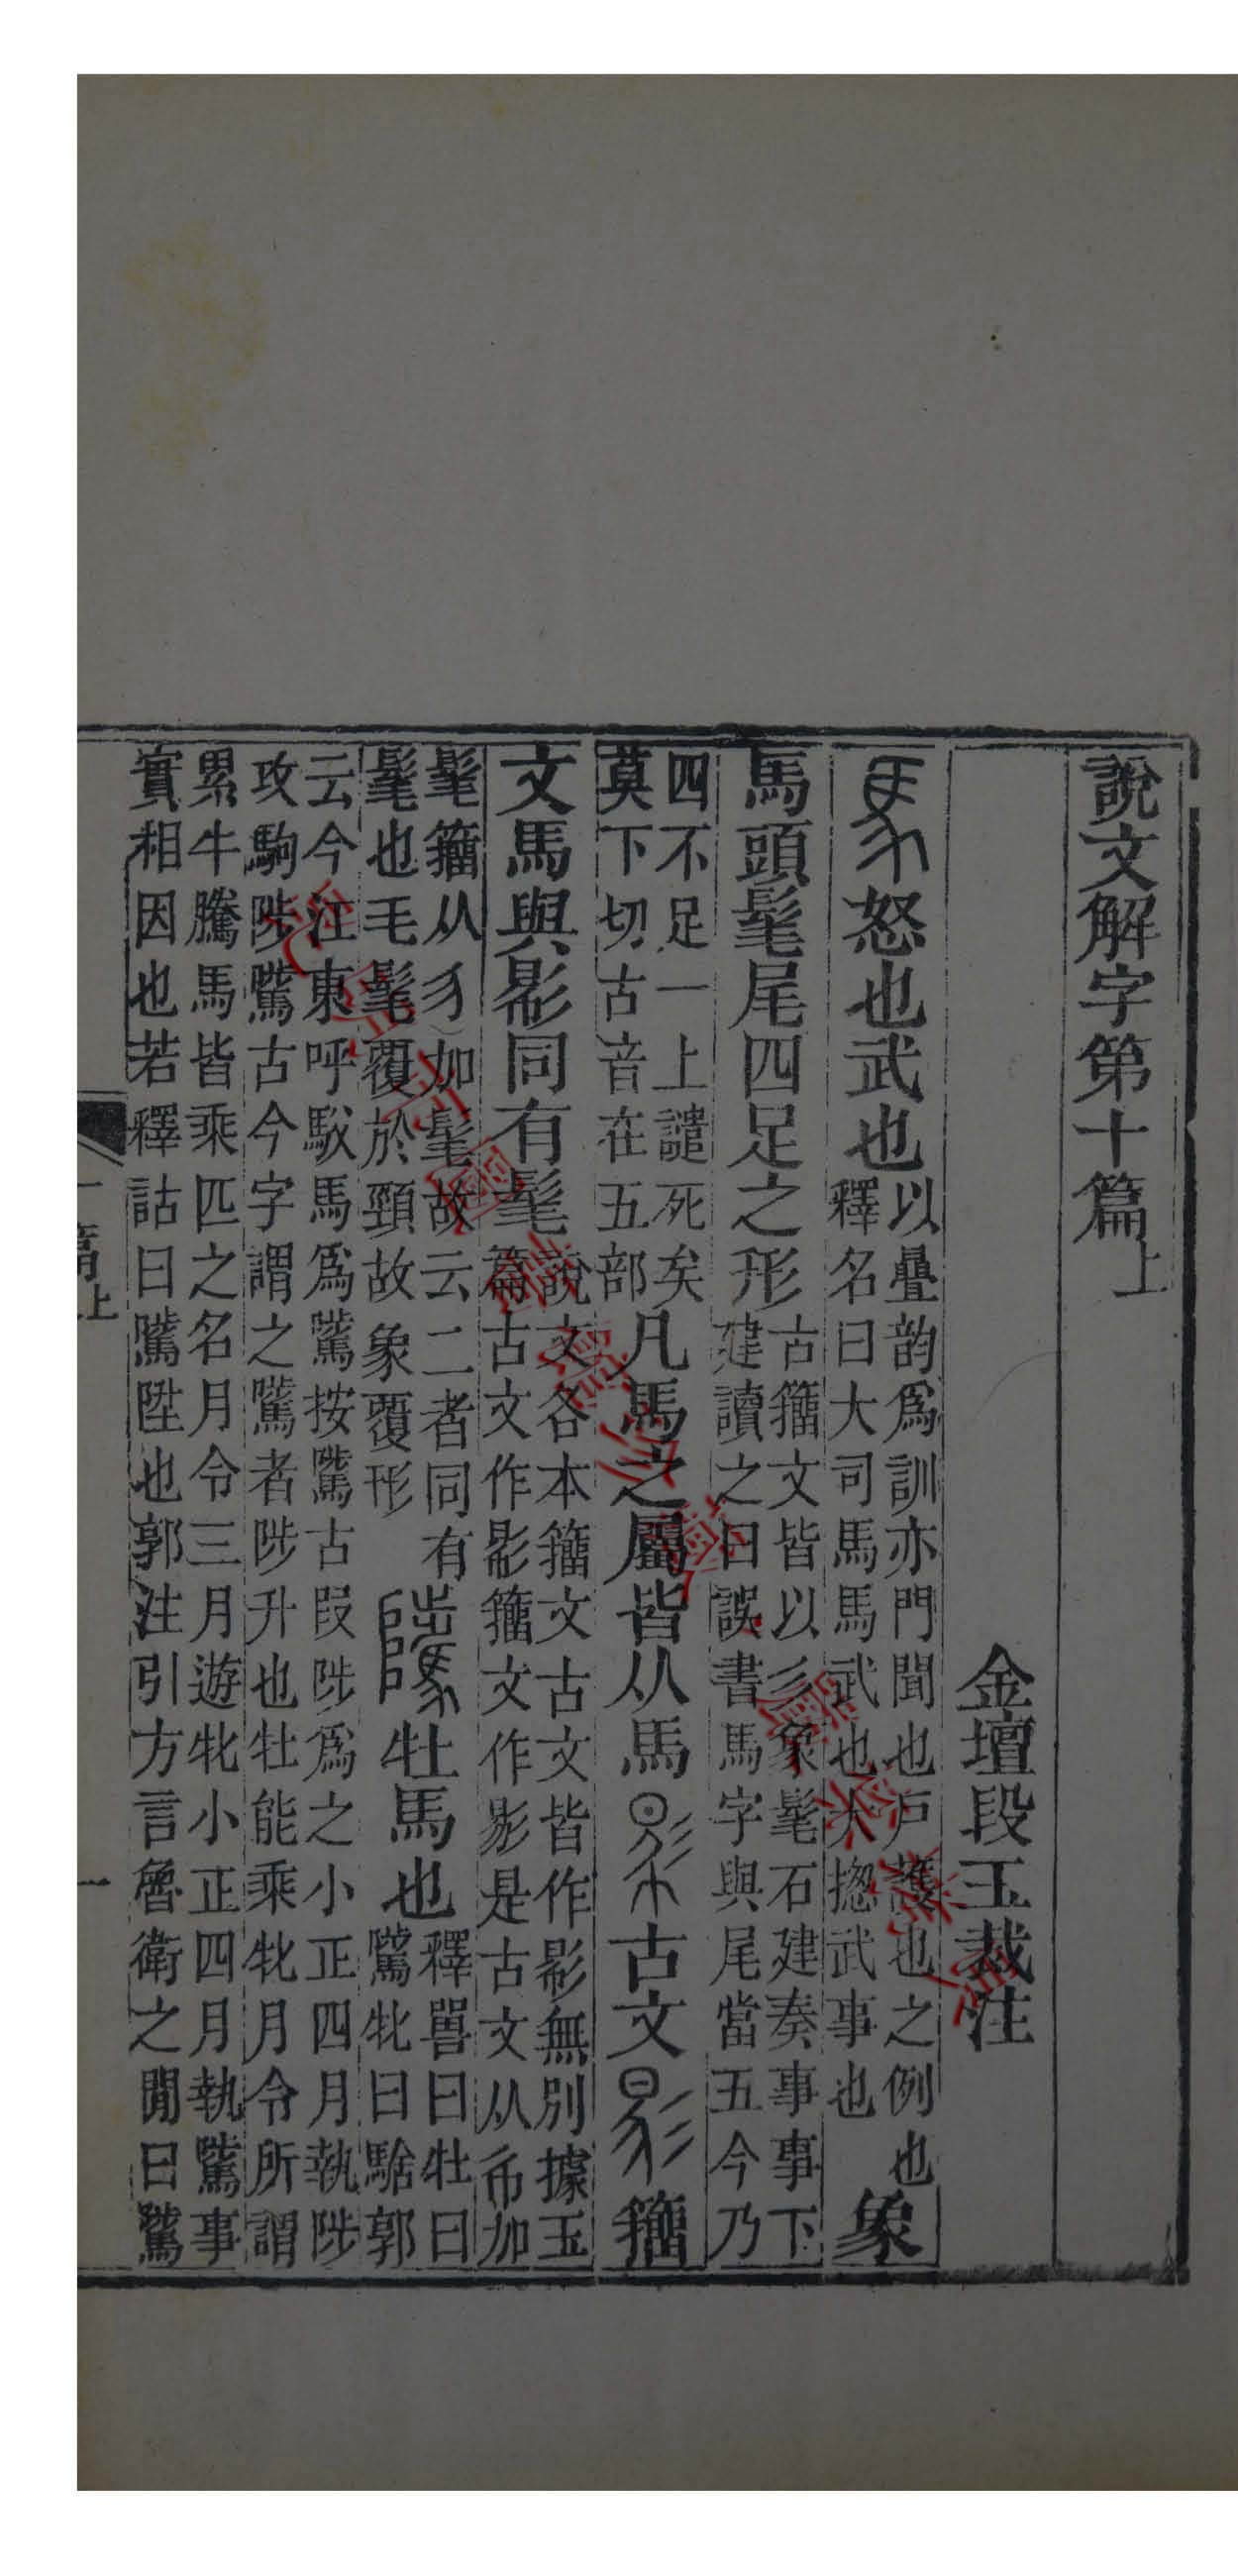 說文解字第十篇上
金壇段玉裁注
馬怒也武也以疊韵爲訓亦門聞也戶護也之例也
釋名曰大司馬馬武也大揔武事也象
馬頭髦尾四足之形古籒文皆以彡象髦石建奏事事下
建讀之曰誤書馬字與尾當五今乃
四不足一上譴死矣
莫下切古音在五部凡馬之屬皆从馬𢒠古文𢒗籒
文馬與𢒠同有髦說文各本籒文古文皆作𢒠無別據玉
篇古文作𢒠籒文作𢒗是古文从𠘳加
髦籒从豸加髦故云二者同有
髦也毛髦覆於頸故象覆形騭牡馬也釋嘼曰牡曰
騭牝曰騇郭
云今江東呼駁馬爲騭按騭古叚陟爲之小正四月執陟
攻駒陟騭古今字謂之騭者陟升也牡能乘牝月令所謂
累牛騰馬皆乘匹之名月令三月遊牝小正四月執騭事
實相因也若釋詁曰騭陞也郭注引方言魯衛之閒曰騭
篇上
一